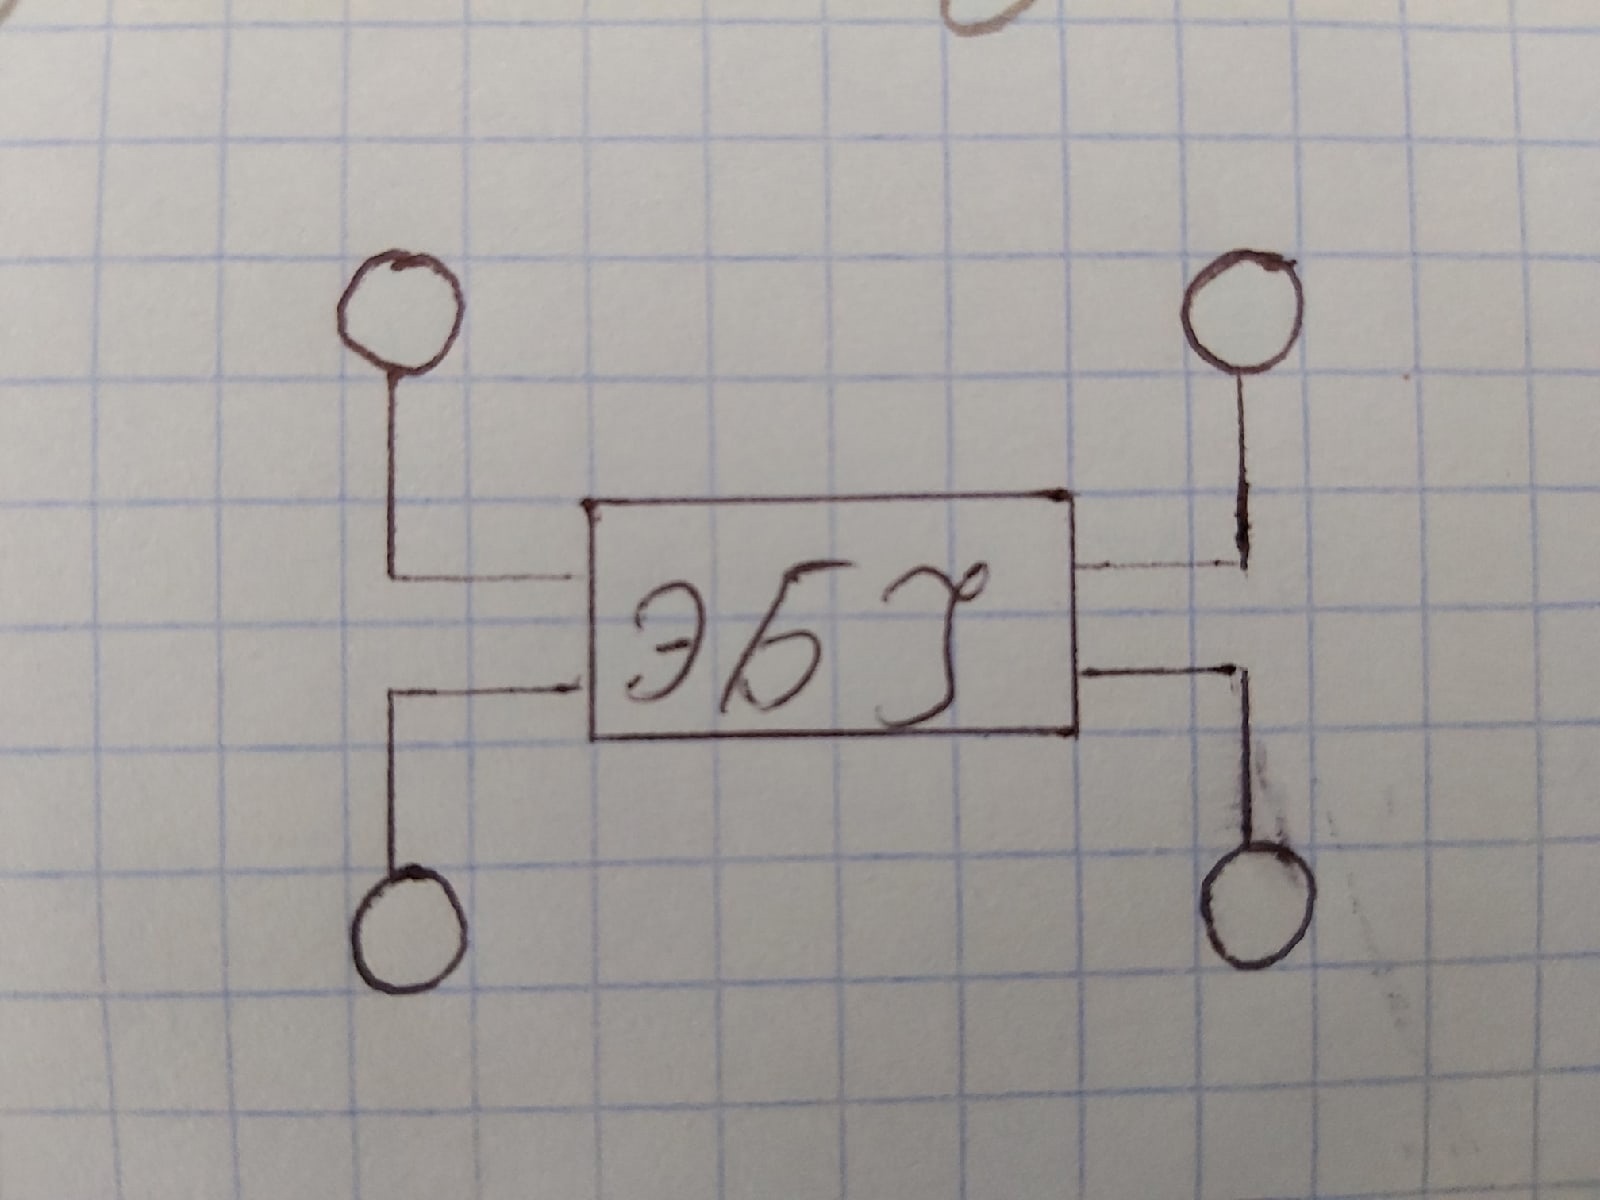 ЭБУ